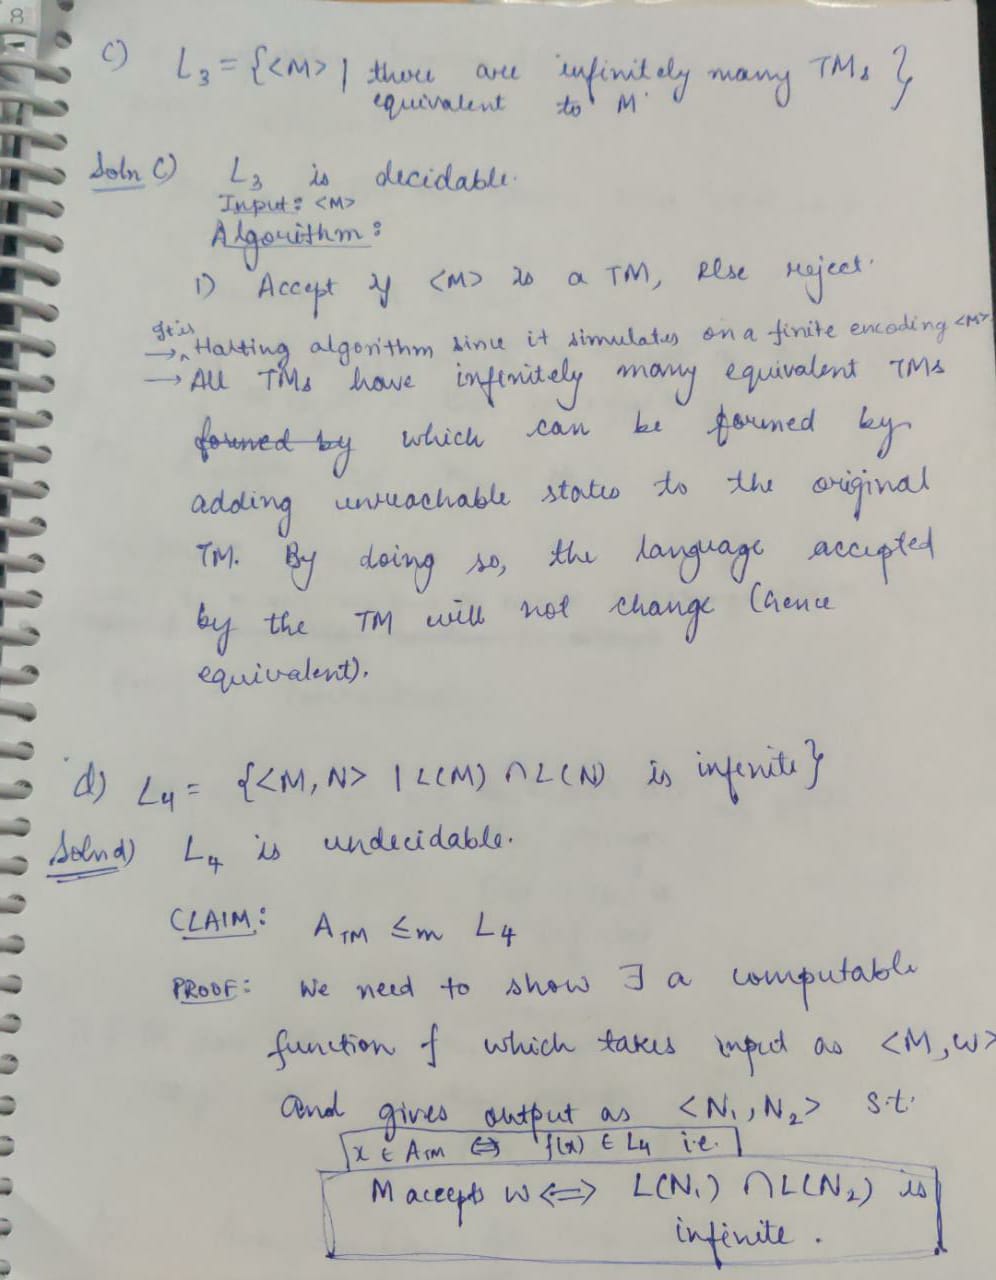 8
c) L₃ = {<M> | there are infinitely many TMs }
equivalent to M
Soln C) L₃ is decidable.
Input: <M>
Algorithm:
1) Accept if <M> is a TM, else reject.
→ It is Halting algorithm since it simulates on a finite encoding <M>
→ All TMs have infinitely many equivalent TMs
formed by which can be formed by
adding unreachable states to the original
TM. By doing so, the language accepted
by the TM will not change (hence
equivalent).
d) L₄ = {<M, N> | L(M) ∩ L(N) is infinite}
Soln d) L₄ is undecidable.
CLAIM: A_TM ≤m L₄
PROOF: We need to show ∃ a computable
function f which takes input as <M, w>
and gives output as <N₁, N₂> s.t.
x ∈ A_TM ⇔ f(x) ∈ L₄ i.e.
M accepts w ⇔ L(N₁) ∩ L(N₂) is
infinite.